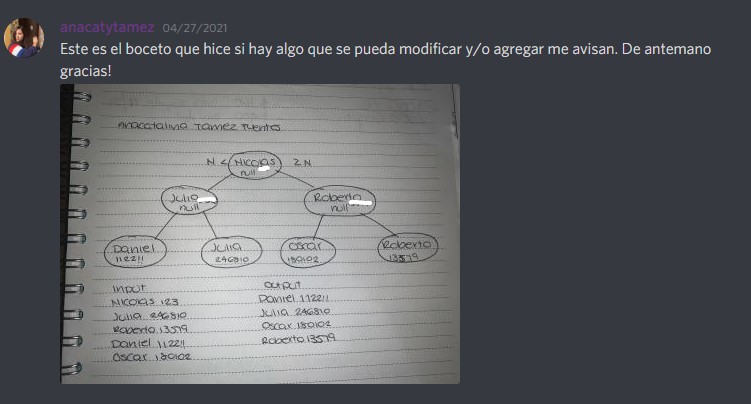 anacatytamez 04/27/2021
Este es el boceto que hice si hay algo que se pueda modificar y/o agregar me avisan. De antemano
gracias!
Tamez
N < Nicolas ≥ N
null
Julia
null
Roberto
null
Daniel
112211
Julia
246810
Oscar
180102
Roberto
13579
Input
Nicolas 123
Julia 246810
Roberto 13579
Daniel 112211
Oscar 180102
Output
Daniel 112211
Julia 246810
Oscar 180102
Roberto 13579